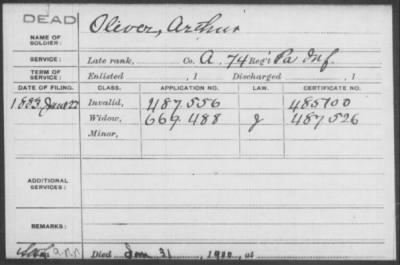 DEAD
NAME OF
SOLDIER:
Oliver, Arthur
SERVICE:
Late rank, Co. A, 74 Reg't Pa Inf.
TERM OF
SERVICE:
Enlisted , 1 Discharged , 1
DATE OF FILING. CLASS. APPLICATION NO. LAW. CERTIFICATE NO.
1883 22 Invalid, 487556 485100
Widow, 669488 J 487526
Minor,
ADDITIONAL
SERVICES:
REMARKS:
Died 31 , 1900, at